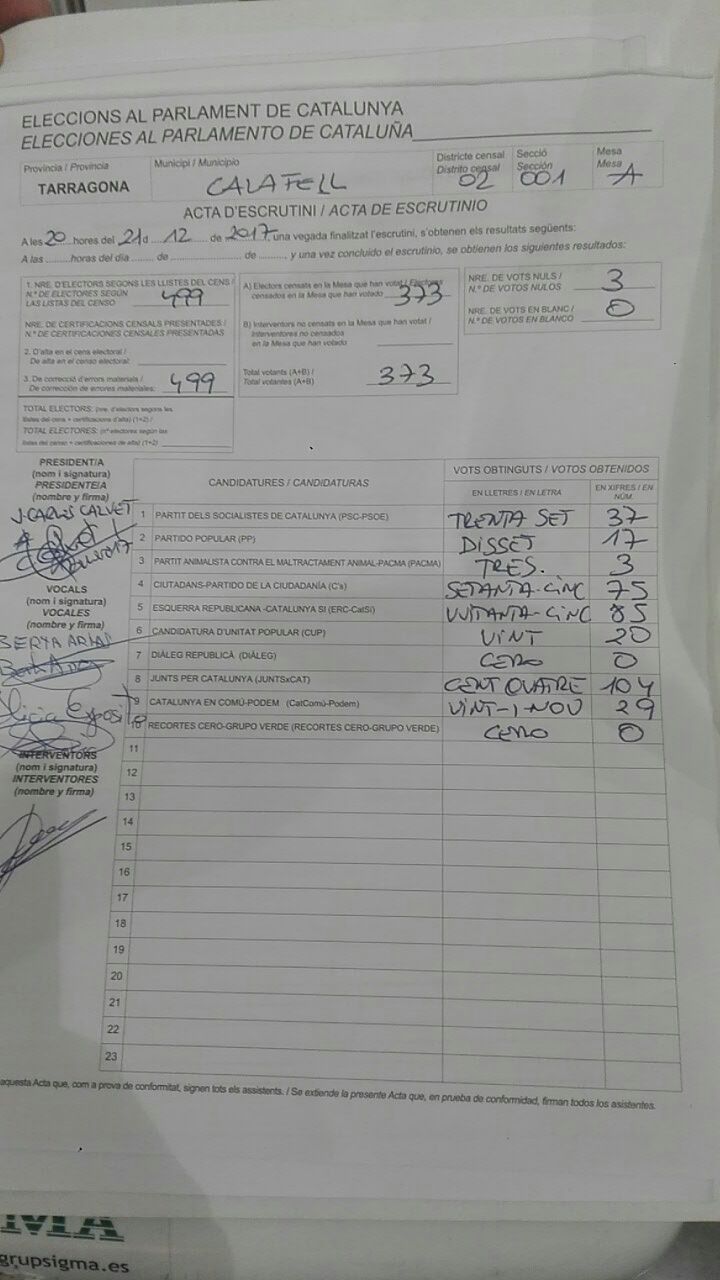 ELECCIONS AL PARLAMENT DE CATALUNYA
ELECCIONES AL PARLAMENTO DE CATALUÑA
Provincia / Provincia
TARRAGONA
Municipi / Municipio
CALAFELL
Districte censal
Distrito censal
02
Secció
Sección
001
Mesa
Mesa
A
ACTA D'ESCRUTINI / ACTA DE ESCRUTINIO
A les 20 hores del 21 d 12 de 2017 una vegada finalitzat l'escrutini, s'obtenen els resultats següents:
A las ........ horas del día ........ de ........ de ........, y una vez concluido el escrutinio, se obtienen los siguientes resultados:
1. NRE. D'ELECTORS SEGONS LES LLISTES DEL CENS /
N.º DE ELECTORES SEGÚN
LAS LISTAS DEL CENSO 499
NRE. DE CERTIFICACIONS CENSALS PRESENTADES /
N.º CERTIFICACIONES CENSALES PRESENTADAS
2. D'alta en el cens electoral /
De alta en el censo electoral:
3. De correcció d'errors materials /
De corrección de errores materiales: 499
TOTAL ELECTORS: (nre. d'electors segons les
llistes del cens + certificacions d'alta) (1+2) /
TOTAL ELECTORES: (nº electores según las
listas del censo + certificaciones de alta) (1+2)
A) Electors censats en la Mesa que han votat / Electores
censados en la Mesa que han votado 373
B) Interventors no censats en la Mesa que han votat /
Interventores no censados
en la Mesa que han votado
Total votants (A+B) /
Total votantes (A+B) 373
NRE. DE VOTS NULS /
N.º DE VOTOS NULOS 3
NRE. DE VOTS EN BLANC /
N.º DE VOTOS EN BLANCO 0
PRESIDENT/A
(nom i signatura)
PRESIDENTE/A
(nombre y firma)
J. CARLOS CALVET
VOCALS
(nom i signatura)
VOCALES
(nombre y firma)
BERTA ARIAS
Alicia Exposito
INTERVENTORS
(nom i signatura)
INTERVENTORES
(nombre y firma)
CANDIDATURES / CANDIDATURAS
VOTS OBTINGUTS / VOTOS OBTENIDOS
EN LLETRES / EN LETRA
EN XIFRES / EN NÚM.
1 PARTIT DELS SOCIALISTES DE CATALUNYA (PSC-PSOE) TRENTA SET 37
2 PARTIDO POPULAR (PP) DISSET 17
3 PARTIT ANIMALISTA CONTRA EL MALTRACTAMENT ANIMAL-PACMA (PACMA) TRES. 3
4 CIUTADANS-PARTIDO DE LA CIUDADANÍA (C's) SETANTA-CINC 75
5 ESQUERRA REPUBLICANA -CATALUNYA SI (ERC-CatSí) VUITANTA-CINC 85
6 CANDIDATURA D'UNITAT POPULAR (CUP) VINT 20
7 DIÀLEG REPUBLICÀ (DIÀLEG) CERO 0
8 JUNTS PER CATALUNYA (JUNTSxCAT) CENT QUATRE 104
9 CATALUNYA EN COMÚ-PODEM (CatComú-Podem) VINT-I-NOU 29
10 RECORTES CERO-GRUPO VERDE (RECORTES CERO-GRUPO VERDE) CERO 0
11
12
13
14
15
16
17
18
19
20
21
22
23
aquesta Acta que, com a prova de conformitat, signen tots els assistents. / Se extiende la presente Acta que, en prueba de conformidad, firman todos los asistentes.
MA
grupsigma.es